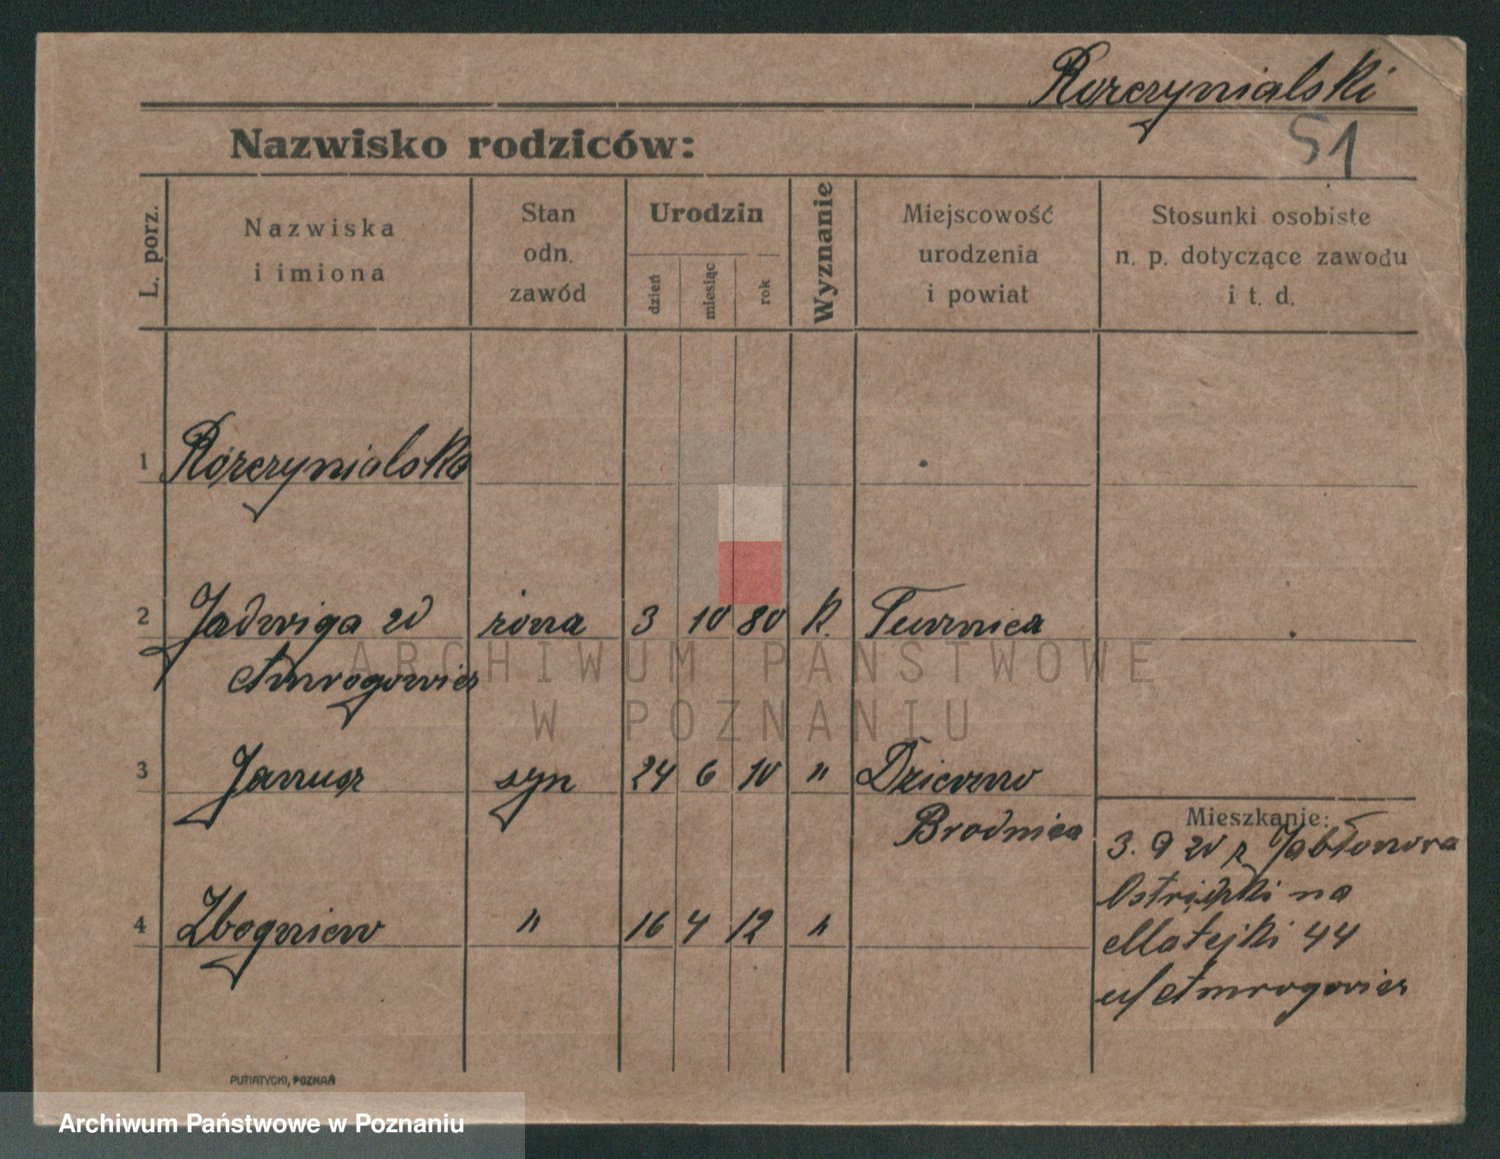 Rorczynialski
51
Nazwisko rodziców:
L. porz.
Nazwiska
i imiona
Stan
odn.
zawód
Urodzin
dzień
miesiąc
rok
Wyznanie
Miejscowość
urodzenia
i powiat
Stosunki osobiste
n. p. dotyczące zawodu
i t. d.
1
2 Jadwiga zd żona 3 10 80 k.
ARCHIWUM PAŃSTWOWE
W POZNANIU
3 Janusz syn 24 6 10 "
Brodnica
4 Zbogniew " 16 4 12 "
Mieszkanie:
3. 9 20 z Jabłonowa
na
Matejki 44
PUTIATYCKI, POZNAŃ
Archiwum Państwowe w Poznaniu